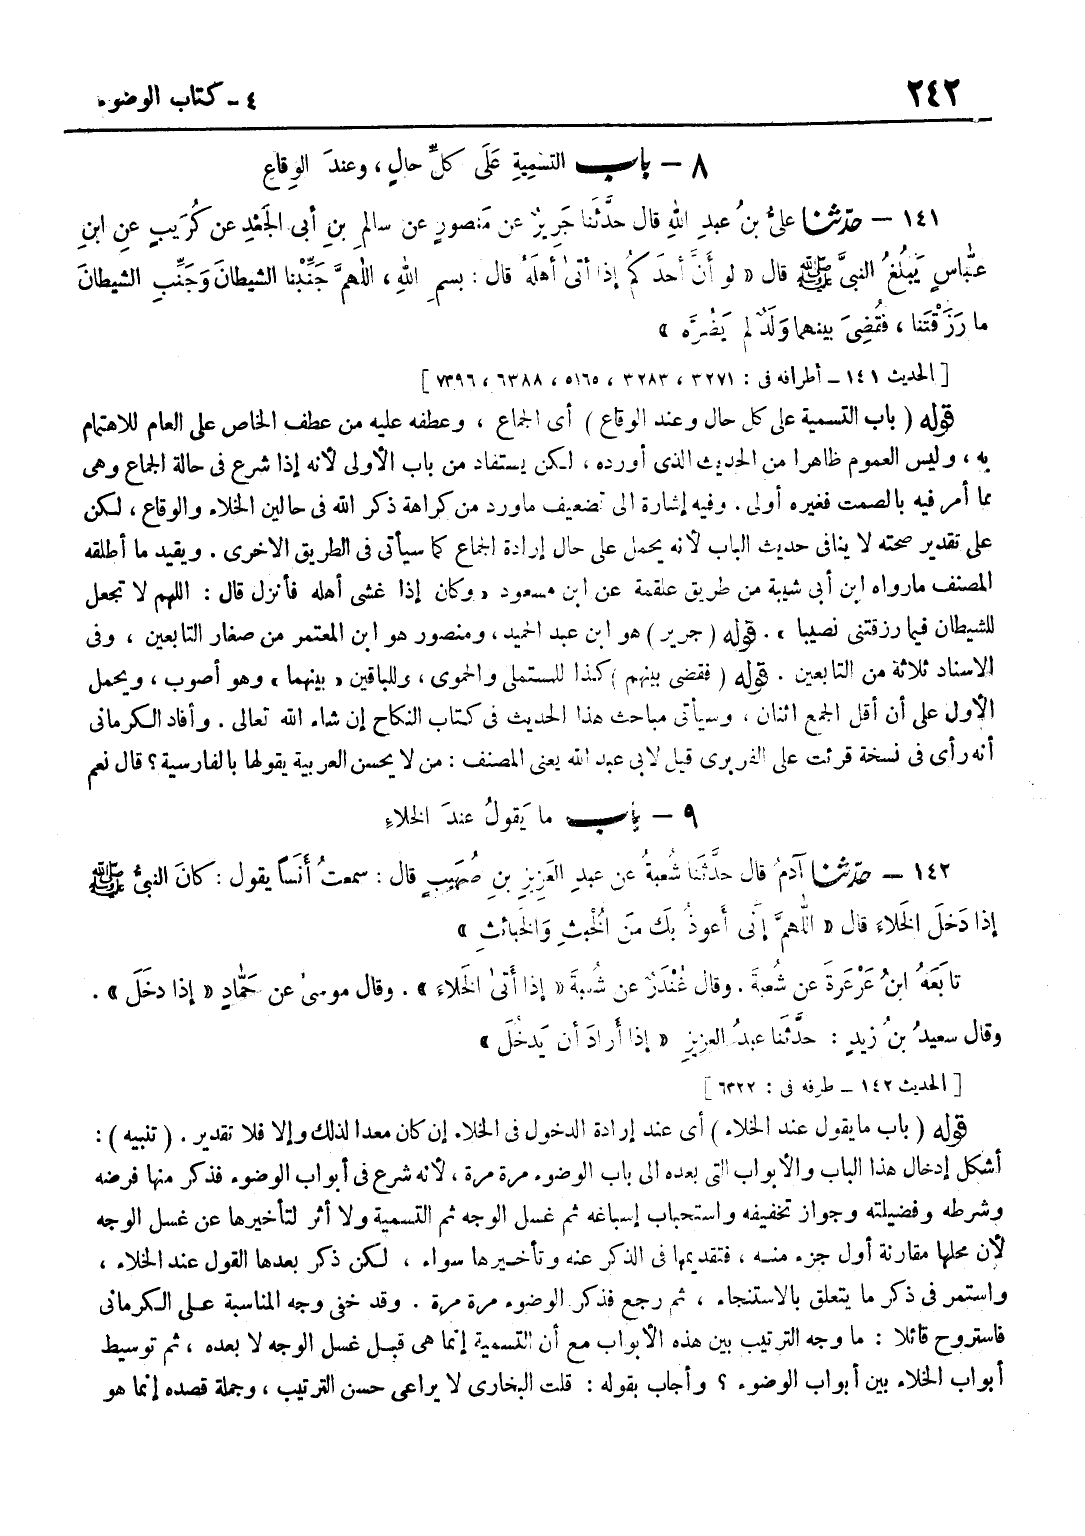 ٢٤٢ ٤ - كتاب الوضوء
٨ - باب التسْمِيةِ عَلَى كلِّ حالٍ ، وعندَ الوِقاعِ
١٤١ - حدّثنا علىُّ بنُ عبدِ اللهِ قال حدَّثَنا جَرِيرٌ عن مَنصورٍ عن سالمِ بنِ أبى الجَعْدِ عن كُرَيبٍ عنِ ابنِ
عبّاسٍ يَبْلُغُ النبىَّ ﷺ قال « لو أَنَّ أحدَكم إذا أتىٰ أهلَهُ قال : بسمِ اللهِ ، اللهمَّ جَنِّبْنا الشيطانَ وَجَنِّبِ الشيطانَ
ما رَزَقْتَنا ، فقُضِىَ بينهما وَلَدٌ لم يَضُرَّه »
[ الحديث ١٤١ - أطرافه فى : ٣٢٧١ ، ٣٢٨٣ ، ٥١٦٥ ، ٦٣٨٨ ، ٧٣٩٦ ]
قوله ( باب التسمية على كل حال وعند الوقاع ) أى الجماع ، وعطفه عليه من عطف الخاص على العام للاهتمام
به ، وليس العموم ظاهرا من الحديث الذى أورده ، لكن يستفاد من باب الأولى لأنه إذا شرع فى حالة الجماع وهى
مما أمر فيه بالصمت فغيره أولى . وفيه إشارة الى تضعيف ماورد من كراهة ذكر الله فى حالين الخلاء والوقاع ، لكن
على تقدير صحته لا ينافى حديث الباب لأنه يحمل على حال إرادة الجماع كما سيأتى فى الطريق الاخرى . ويقيد ما أطلقه
المصنف مارواه ابن أبى شيبة من طريق علقمة عن ابن مسعود « وكان إذا غشى أهله فأنزل قال : اللهم لا تجعل
للشيطان فيما رزقتنى نصيبا » . قوله ( جرير ) هو ابن عبد الحميد ، ومنصور هو ابن المعتمر من صغار التابعين ، وفى
الاسناد ثلاثة من التابعين . قوله ( فقضى بينهم ) كذا للمستملى والحموى ، وللباقين « بينهما » وهو أصوب ، ويحمل
الأول على أن أقل الجمع اثنان ، وسيأتى مباحث هذا الحديث فى كتاب النكاح إن شاء الله تعالى . وأفاد الكرمانى
أنه رأى فى نسخة قرئت على الفربرى قيل لابى عبد الله يعنى المصنف : من لا يحسن العربية يقولها بالفارسية ؟ قال نعم
٩ - باب ما يَقولُ عندَ الخلاءِ
١٤٢ - حدّثنا آدمُ قال حدَّثَنا شُعبةُ عن عبدِ العَزِيزِ بنِ صُهَيبٍ قال : سمعتُ أَنَساً يقول : كانَ النبىُّ ﷺ
إذا دَخلَ الخَلاءَ قال « اللّهمَّ إنِّى أَعوذُ بكَ منَ الخُبثِ وَالخبائثِ »
تابَعَهُ ابنُ عَرْعَرةَ عن شُعبةَ . وقال غُنْدَرٌ عن شُعبةَ « إذا أتىٰ الخَلاءَ » . وقال موسىٰ عن حَمَّادٍ « إذا دخَلَ » .
وقال سعيدُ بنُ زيدٍ : حدَّثَنا عبدُ العزيزِ « إذا أَرادَ أن يَدخُلَ »
[ الحديث ١٤٢ - طرفه فى : ٦٣٢٢ ]
قوله ( باب مايقول عند الخلاء ) أى عند إرادة الدخول فى الخلاء إن كان معدا لذلك وإلا فلا تقدير . ( تنبيه ) :
أشكل إدخال هذا الباب والأبواب التى بعده الى باب الوضوء مرة مرة ، لأنه شرع فى أبواب الوضوء فذكر منها فرضه
وشرطه وفضيلته وجواز تخفيفه واستحباب إسباغه ثم غسل الوجه ثم التسمية ولا أثر لتأخيرها عن غسل الوجه
لأن محلها مقارنة أول جزء منه ، فتقديمها فى الذكر عنه وتأخيرها سواء ، لكن ذكر بعدها القول عند الخلاء ،
واستمر فى ذكر ما يتعلق بالاستنجاء ، ثم رجع فذكر الوضوء مرة مرة . وقد خفى وجه المناسبة على الكرمانى
فاستروح قائلا : ما وجه الترتيب بين هذه الأبواب مع أن التسمية إنما هى قبل غسل الوجه لا بعده ، ثم توسيط
أبواب الخلاء بين أبواب الوضوء ؟ وأجاب بقوله : قلت البخارى لا يراعى حسن الترتيب ، وجملة قصده إنما هو